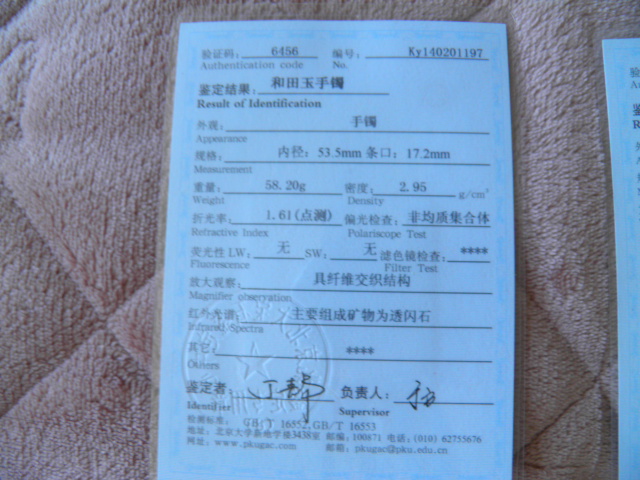 验证码: 6456 编号: Ky140201197
Authentication code No.
鉴定结果: 和田玉手镯
Result of Identification
外观: 手镯
Appearance
规格: 内径: 53.5mm 条口: 17.2mm
Measurement
重量: 58.20g 密度: 2.95 g/cm³
Weight Density
折光率: 1.61(点测) 偏光检查: 非均质集合体
Refractive Index Polariscope Test
荧光性 LW: 无 SW: 无 滤色镜检查: ****
Fluorescence Filter Test
放大观察: 具纤维交织结构
Magnifier observation
红外光谱: 主要组成矿物为透闪石
Infrared Spectra
其它: ****
Others
鉴定者: 负责人:
Identifier Supervisor
检测标准: GB/T 16552,GB/T 16553
地址: 北京大学新地学楼3438室 邮编: 100871 电话: (010) 62755676
网址: www.pkugac.com 邮箱: pkugac@pku.edu.cn